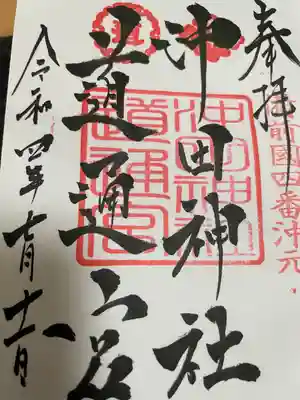 奉拝
備前國四番沖元
沖田神社
道通宮
沖田神社
道通宮
令和四年七月十 日